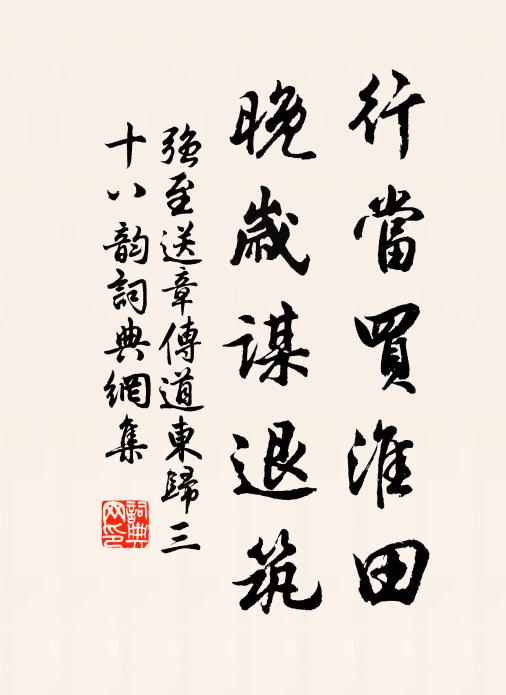 行當買淮田
晚歲謀退筑
強至送章傳道東歸三
十八韵詞典網集
詞典
网印